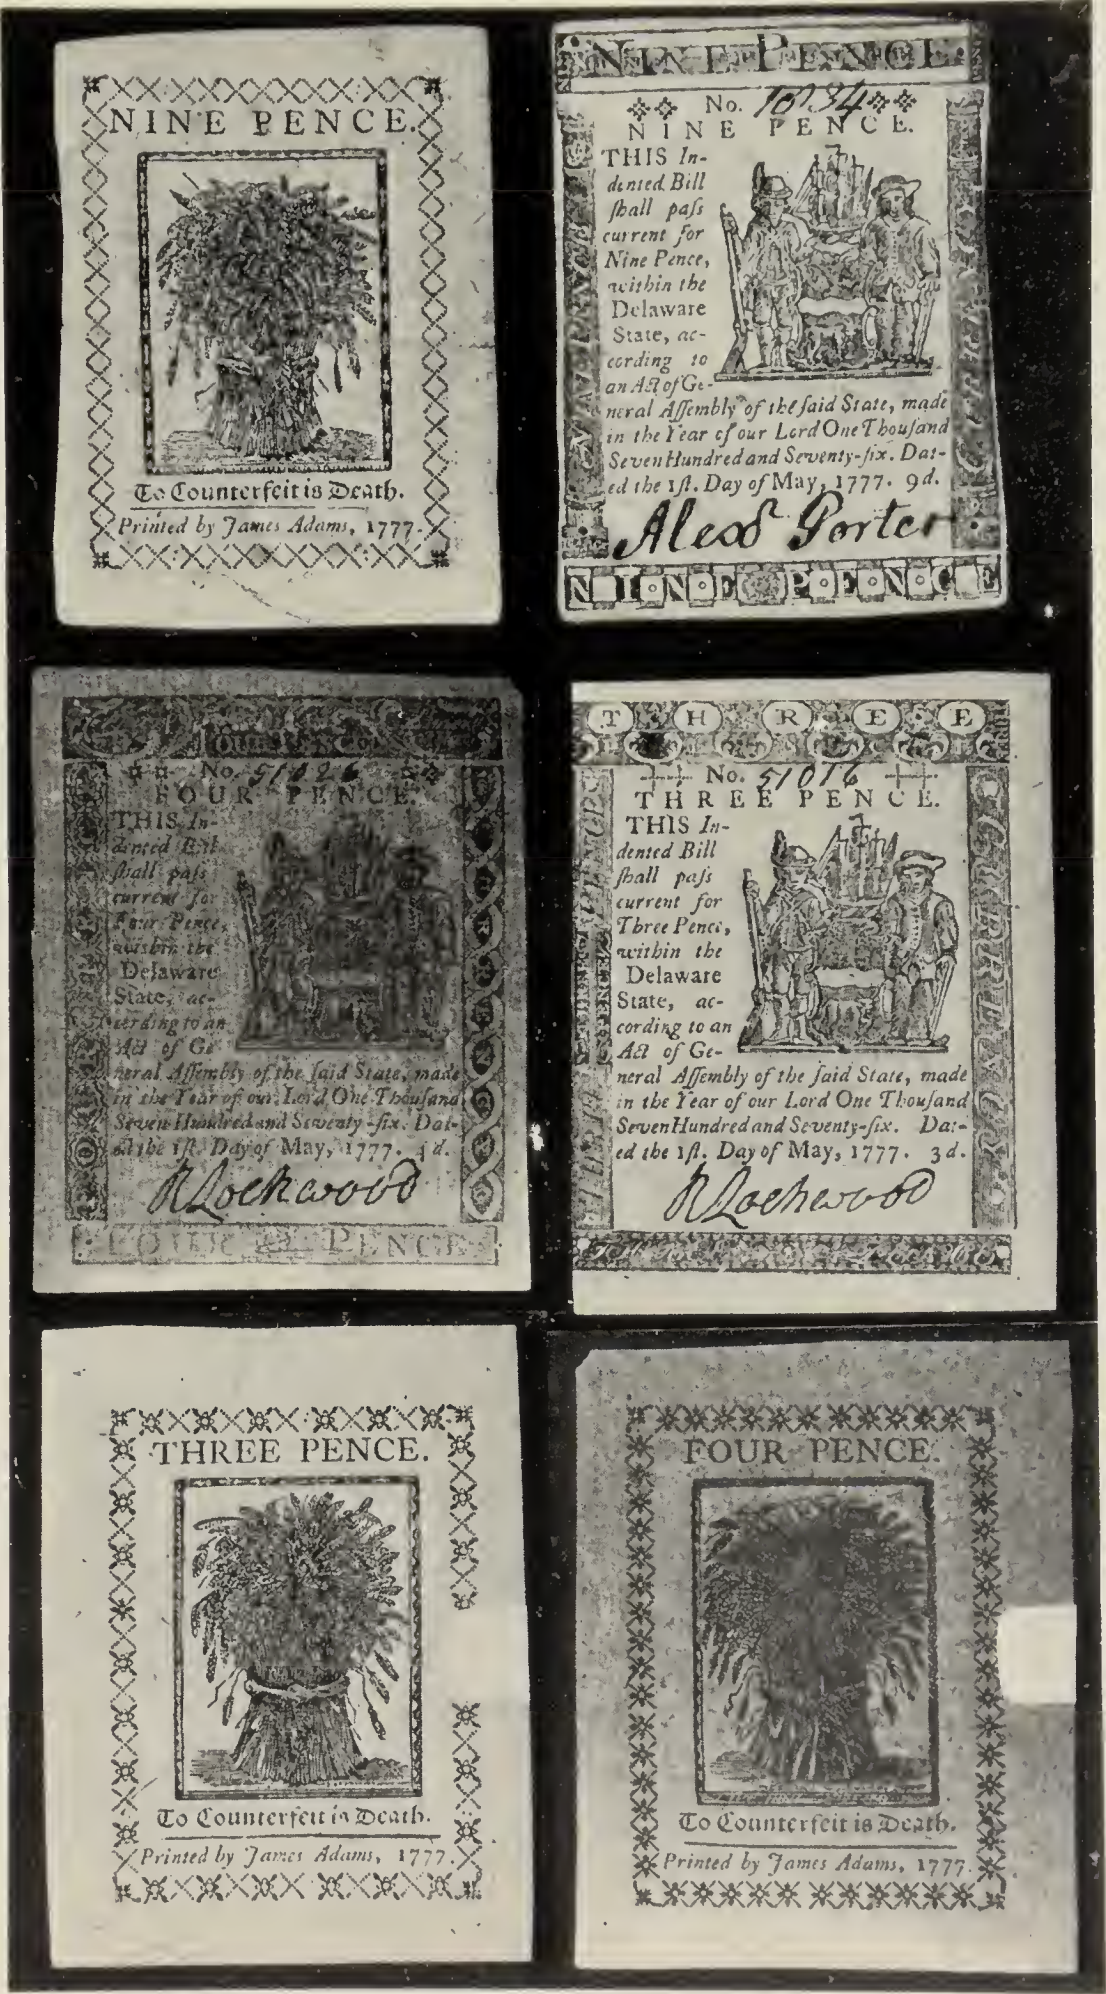 NINE PENCE.
To Counterfeit is Death.
Printed by James Adams, 1777.
NINE PENCE
No. 10734
NINE PENCE.
THIS In-
dented Bill
ſhall paſs
current for
Nine Pence,
within the
Delaware
State, ac-
cording to
an Act of Ge-
neral Aſſembly of the ſaid State, made
in the Year of our Lord One Thouſand
Seven Hundred and Seventy-ſix. Dat-
ed the 1ſt. Day of May, 1777. 9d.
Alexr Porter
NINE PENCE
Four Pence
No. 51026
FOUR PENCE.
THIS In-
dented Bill
ſhall paſs
current for
Four Pence,
within the
Delaware
State, ac-
cording to an
Act of Ge-
neral Aſſembly of the ſaid State, made
in the Year of our Lord One Thouſand
Seven Hundred and Seventy-ſix. Dat-
ed the 1ſt. Day of May, 1777. 4d.
R Lockwood
FOUR PENCE
THREE
PENCE
No. 51016
THREE PENCE.
THIS In-
dented Bill
ſhall paſs
current for
Three Pence,
within the
Delaware
State, ac-
cording to an
Act of Ge-
neral Aſſembly of the ſaid State, made
in the Year of our Lord One Thouſand
Seven Hundred and Seventy-ſix. Dat-
ed the 1ſt. Day of May, 1777. 3d.
R Lockwood
THREE PENCE.
To Counterfeit is Death.
Printed by James Adams, 1777.
FOUR PENCE.
To Counterfeit is Death.
Printed by James Adams, 1777.